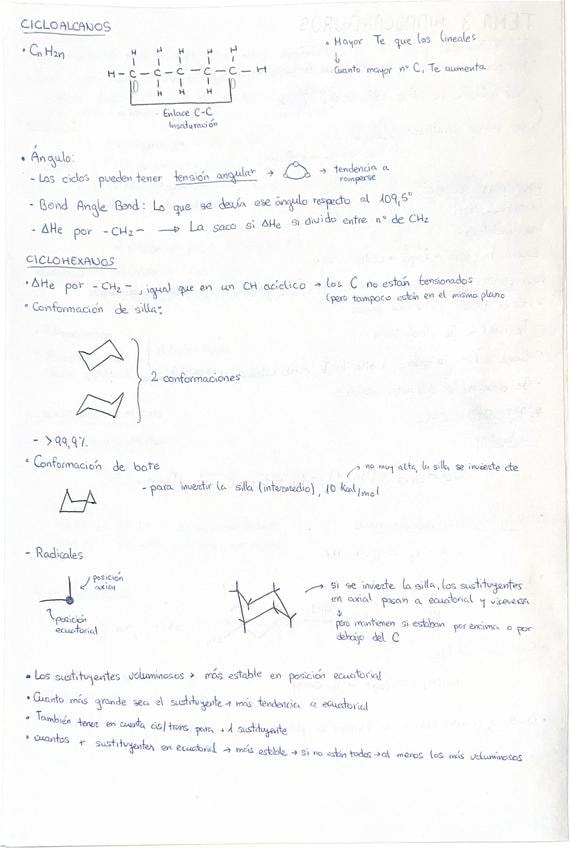 CICLOALCANOS
• CnH2n
H H H H H
H-C-C-C-C-C-H
H H H
Enlace C-C
Insaturación
• Mayor Te que los lineales
↓
Cuanto mayor nº C, Te aumenta
• Ángulo:
- Los ciclos pueden tener tensión angular → → tendencia a romperse
- Bond Angle Bond: Lo que se desvía ese ángulo respecto al 109,5°
- ΔHe por -CH2- → La saco si ΔHe si divido entre nº de CH2
CICLOHEXANOS
• ΔHe por -CH2-, igual que en un CH acíclico → los C no están tensionados
(pero tampoco están en el mismo plano
• Conformación de silla:
2 conformaciones
- >99,9%
• Conformación de bote
no muy alta, la silla se invierte cte
- para invertir la silla (intermedio), 10 Kcal/mol
- Radicales
posición
axial
posición
ecuatorial
→ si se invierte la silla, los sustituyentes
en axial pasan a ecuatorial y viceversa
↓
pero mantienen si estaban por encima o por
debajo del C
• Los sustituyentes voluminosos > más estable en posición ecuatorial
• Cuanto más grande sea el sustituyente → más tendencia a ecuatorial
• También tener en cuenta cis/trans para +1 sustituyente
• cuantos + sustituyentes en ecuatorial → más estable → si no están todos → al menos los más voluminosos